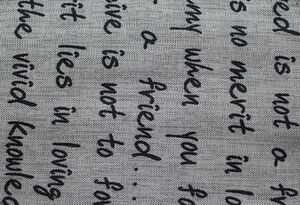 ed is not a fr
s no merit in lo
my when you fo
a friend...
ive is not to fo
it lies in loving
the vivid knowled